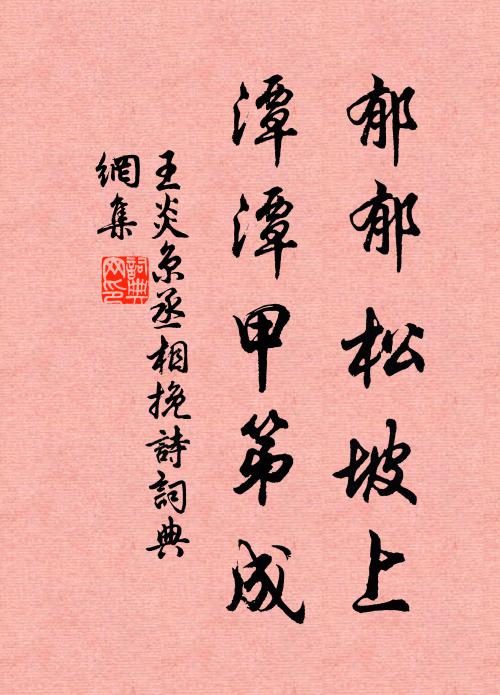 郁郁松坡上
潭潭甲第成
王炎京丞相挽詩詞典
網集
詞典網印